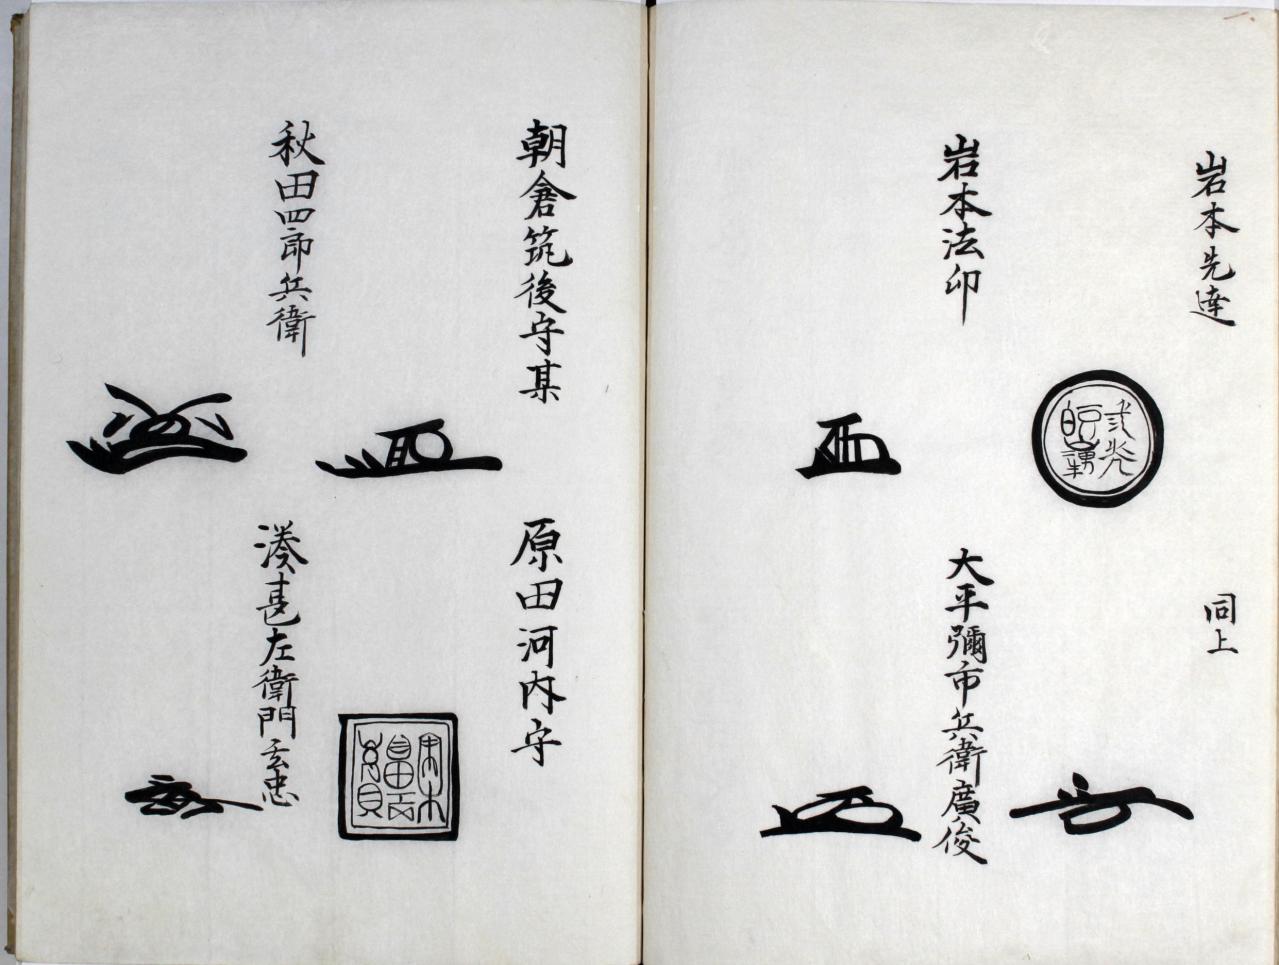 岩本先達
同上
岩本法印
大平彌市兵衛廣俊
朝倉筑後守某
原田河内守
秋田四郎兵衛
湊甚左衛門玄忠